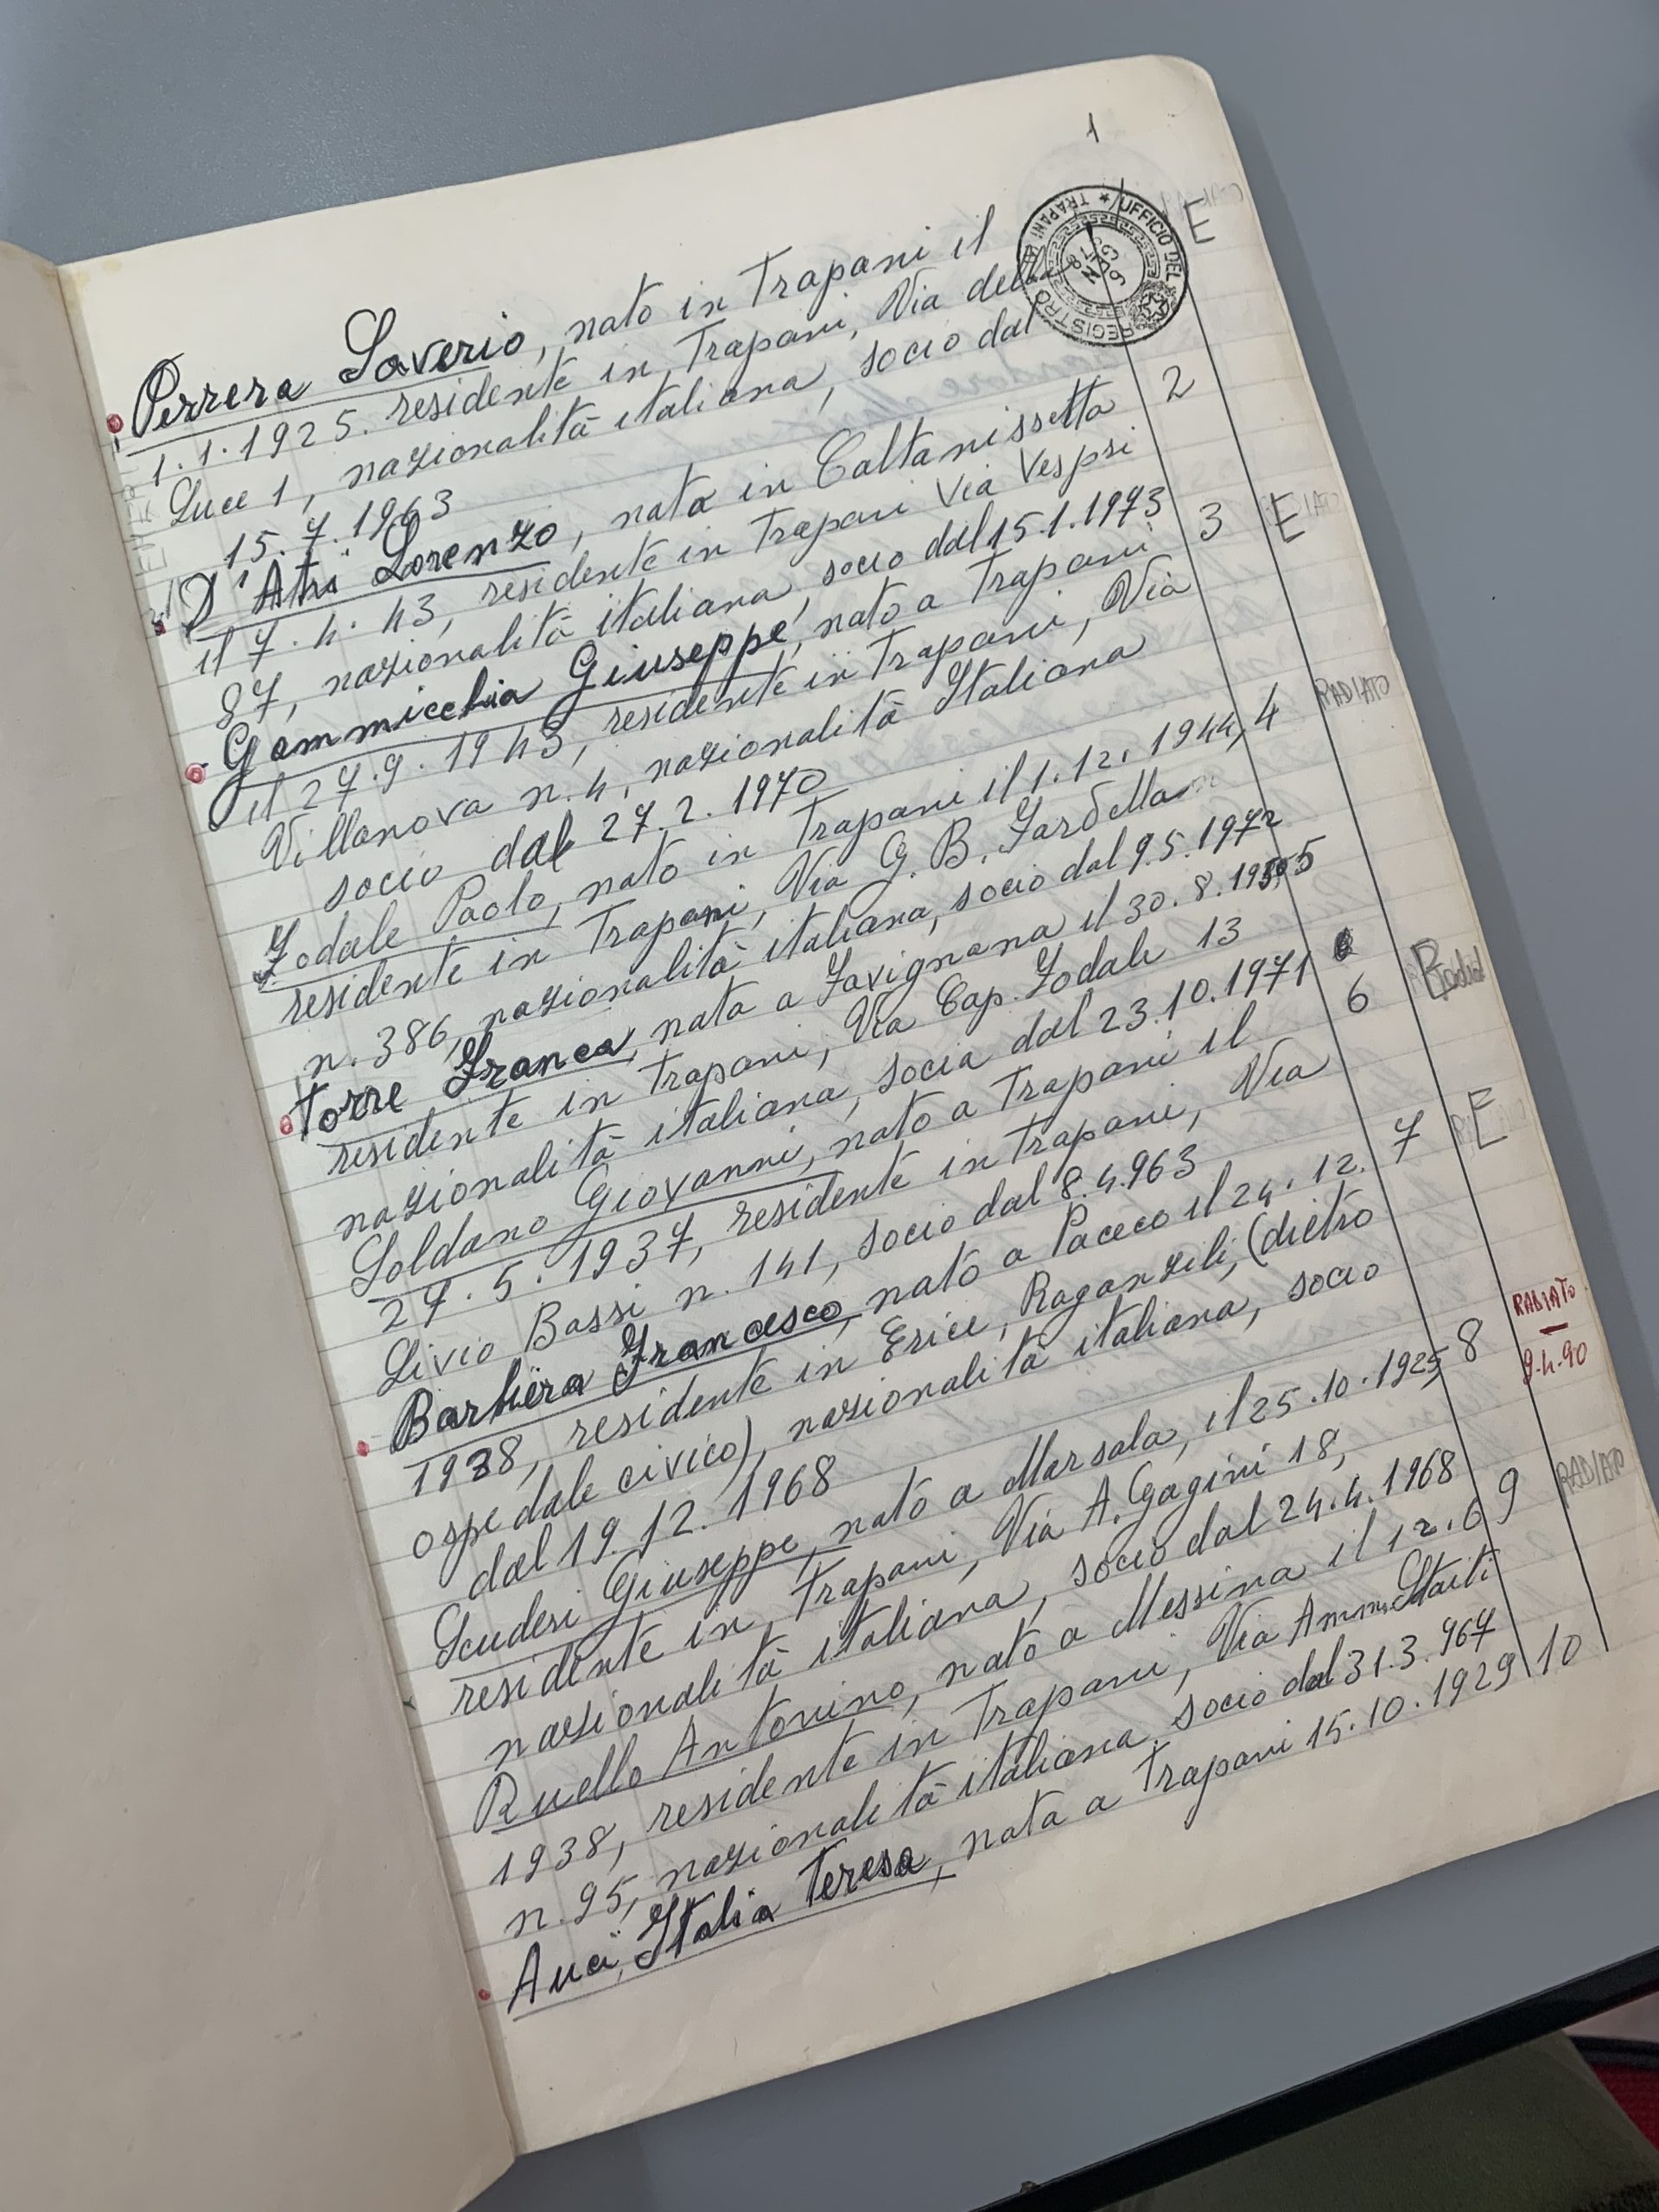 1
E
Perrera Saverio, nato in Trapani il
1.1.1925. residente in Trapani, Via della
Luce 1, nazionalità italiana, socio dal
15.7.1963
2
D'Atri Lorenzo, nata in Caltanissetta
il 7.4.43, residente in Trapani Via Vespri
87, nazionalità italiana, socio dal 15.1.1973
3 E
Gammicchia Giuseppe, nato a Trapani
il 27.9.1943, residente in Trapani, Via
Villanova n.4, nazionalità Italiana
socio dal 27.2.1970
4 RADIATO
Fodale Paolo, nato in Trapani il 1.12.1944,
residente in Trapani, Via G.B. Fardella
n.386, nazionalità italiana, socio dal 9.5.1972
5
Torre Franca, nata a Favignana il 30.8.
residente in Trapani, Via Cap. Fodale 13
nazionalità italiana, socia dal 23.10.1971
6 Radiato
Soldano Giovanni, nato a Trapani il
27.5.1937, residente in Trapani, Via
Livio Bassi n.141, socio dal 8.4.963
7 E
Barbera Francesco, nato a Paceco il 24.12.
1938, residente in Erice, Raganzili, (dietro
ospedale civico), nazionalità italiana, socio
dal 19.12.1968
8 RADIATO
9-4-90
Scuderi Giuseppe, nato a Marsala, il 25.10.1925,
residente in Trapani, Via A. Gagini 18,
nazionalità italiana, socio dal 24.4.1968
9 RADIATO
Ruello Antonino, nato a Messina il 12.6
1938, residente in Trapani, Via Amm. Staiti
n.95, nazionalità italiana, socio dal 31.3.967
10
Auci Italia Teresa, nata a Trapani 15.10.1929
UFFICIO DEL REGISTRO TRAPANI